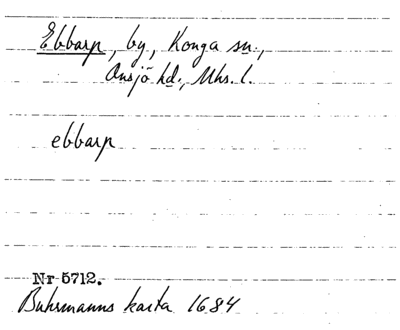 Ebbarp, by, Konga sn.,
Onsjö hd., Mhs. l.
ebbarp
Nr 5712.
Buhrmanns karta 1684